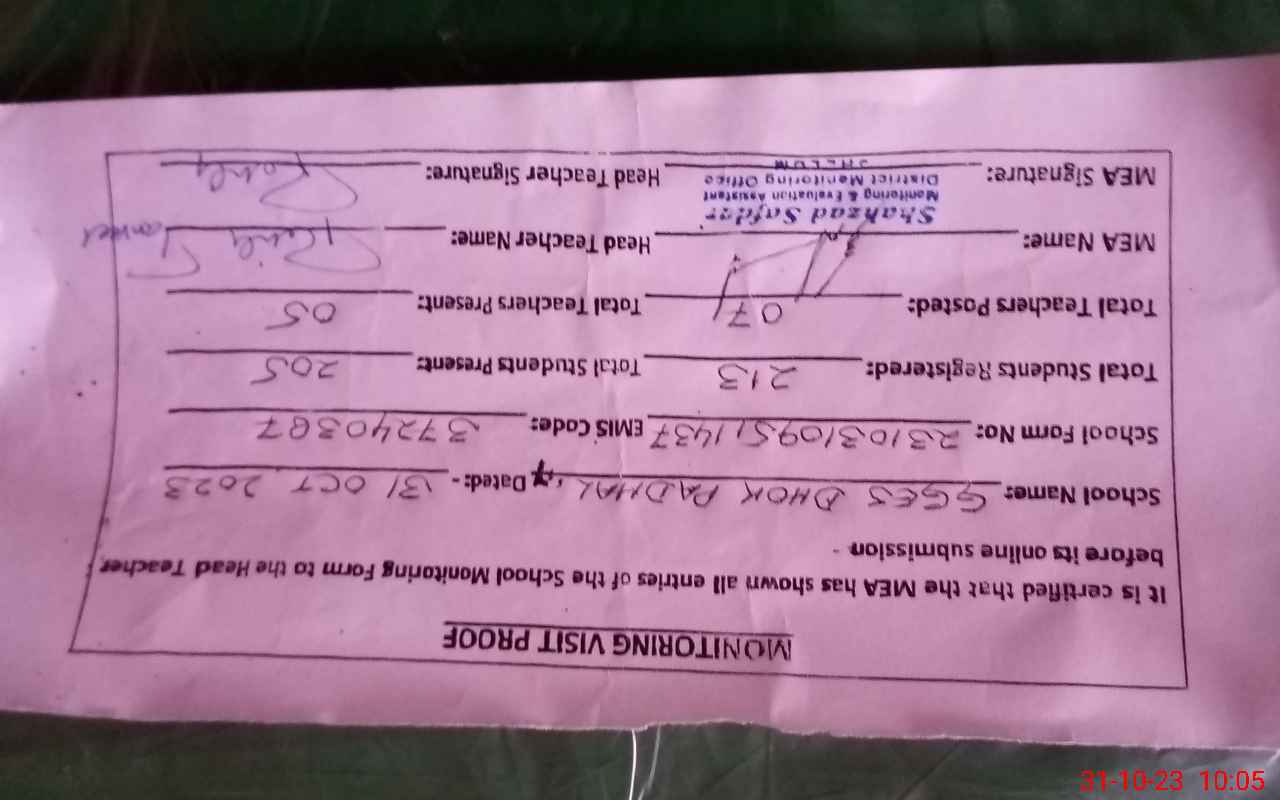 MONITORING VISIT PROOF
It is certified that the MEA has shown all entries of the School Monitoring Form to the Head Teacher
before its online submission -
School Name: GGES DHOK PADHAL, Dated: - 31 OCT 2023
School Form No: 231031095511437 EMIS Code: 37240387
Total Students Registered: 213 Total Students Present: 205
Total Teachers Posted: 07 Total Teachers Present: 05
MEA Name: Head Teacher Name:
Shahzad Safdar
Monitoring & Evaluation Assistant
District Monitoring Office
JHELUM
MEA Signature: Head Teacher Signature:
31-10-23 10:05